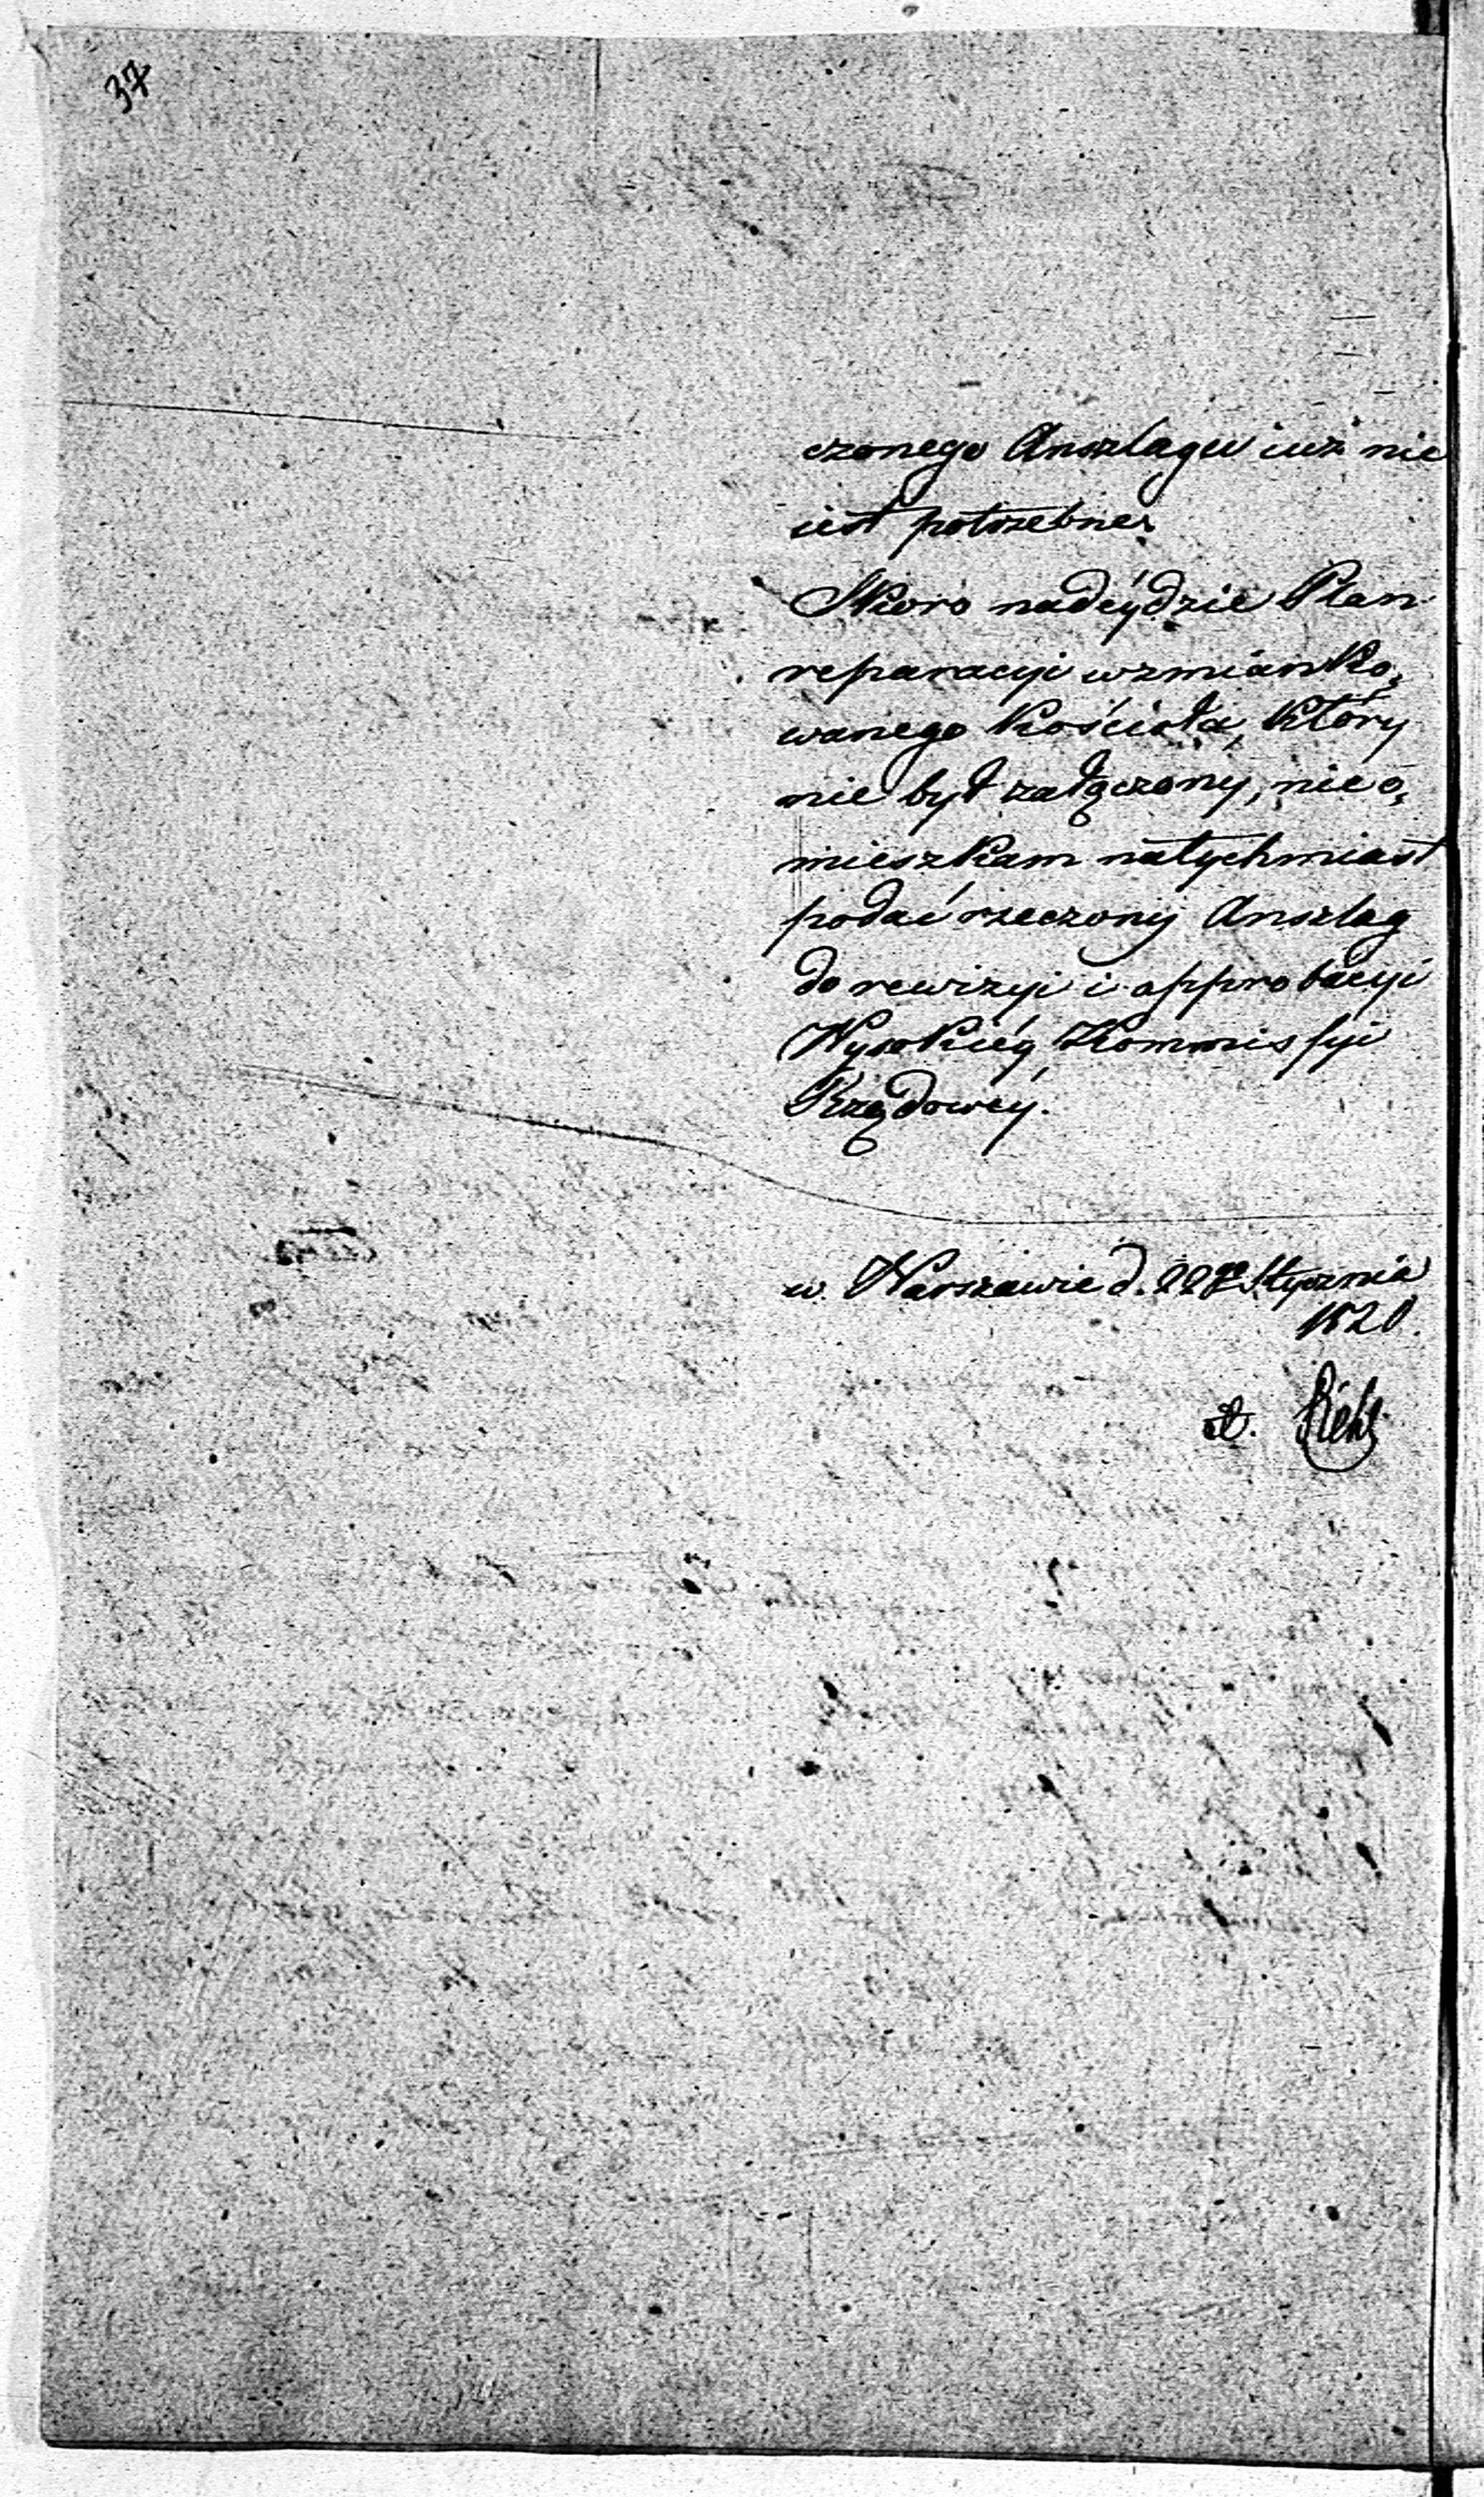 37
czonego Anszlagu iuż nie
iest potrzebne.
Skoro nadeydzie Plan
reparacyi wzmianko,
wanego Kościoła, który
nie był załączony, nie o,
mieszkam natychmiast
podać rzeczony Anszlag
do rewizyi i approbacyi
Wysokiéy Kommissyi
Rządowéy.
w Warszawie d. 22go Stycznia
1820.